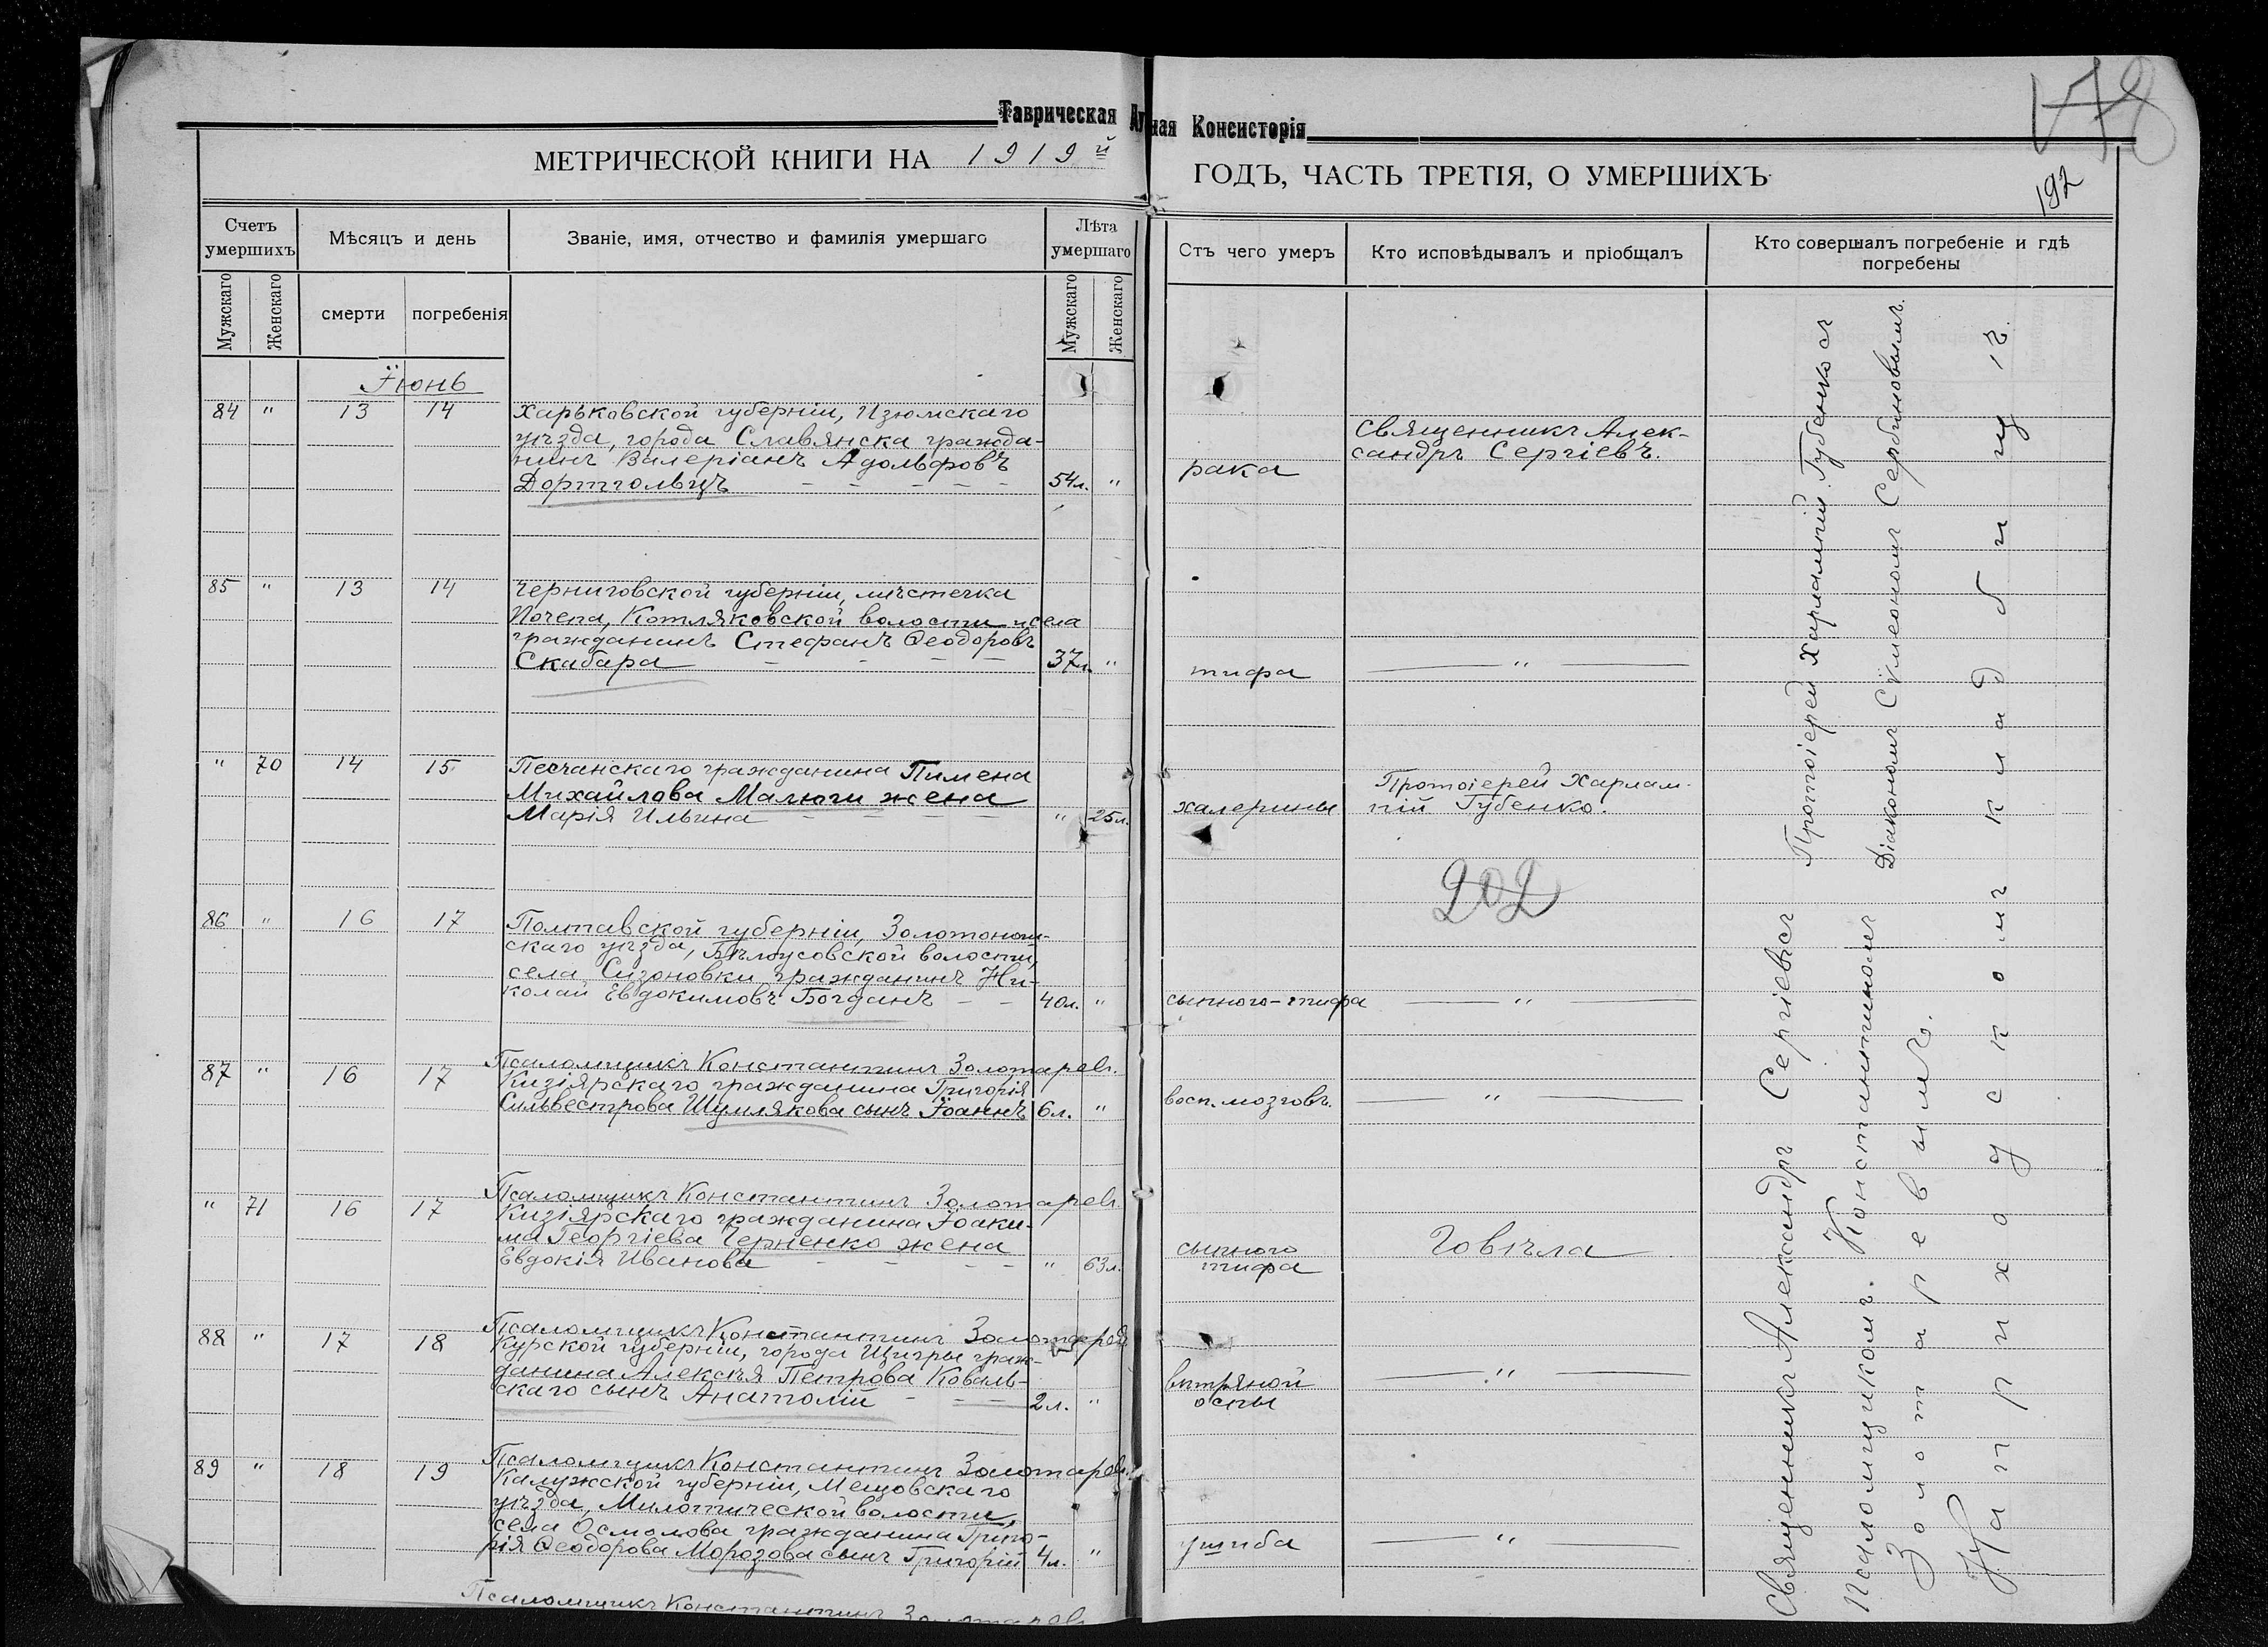 Таврическая Ду
ная Консисторія
178
192
МЕТРИЧЕСКОЙ КНИГИ НА 1919й
ГОДЪ, ЧАСТЬ ТРЕТІЯ, О УМЕРШИХЪ
Счетъ умершихъ
Мужскаго
Женскаго
Мѣсяцъ и день
смерти
погребенія
Званіе, имя, отчество и фамилія умершаго
Лѣта умершаго
Мужскаго
Женскаго
Отъ чего умеръ
Кто исповѣдывалъ и пріобщалъ
Кто совершалъ погребеніе и гдѣ
погребены
Іюнь
84 " 13 14 Харьковской губерніи, Изюмскаго
уѣзда, города Славянска гражда-
нинъ Валеріанъ Адольфовъ
Дортгольцъ 54л. "
рака
Священникъ Алек-
сандръ Сергіевъ.
85 " 13 14 Черниговской губерніи, мѣстечка
Почепа, Котляковской волости и села
гражданинъ Стефанъ Ѳеодоровъ
Скабара 37л. "
тифа "
" 70 14 15 Песчанскаго гражданина Пимена
Михайлова Малюги жена
Марія Ильина " 25л.
халерины
Протоіерей Харлам-
пій Губенко.
202
86 " 16 17 Полтавской губерніи, Золотонош-
скаго уѣзда, Бѣлоусовской волости,
села Сизоновки гражданинъ Ни-
колай Евдокимовъ Богданъ 40л. "
сыпного-тифа "
Псаломщикъ Константинъ Золотаревъ.
87 " 16 17 Кизіярскаго гражданина Григорія
Сильвестрова Шумлякова сынъ Іоаннъ 6л. "
восп. мозговъ. "
Псаломщикъ Константинъ Золотаревъ
" 71 16 17 Кизіярскаго гражданина Іоаки-
ма Георгіева Черненко жена
Евдокія Иванова " 63л.
сыпного
тифа
Говѣла
Псаломщикъ Константинъ Золотаревъ
88 " 17 18 Курской губерніи, города Щигры граж-
данина Алексѣя Петрова Коваль-
скаго сынъ Анатолій 2л. "
вѣтряной
оспы
"
Псаломщикъ Константинъ Золотаревъ.
89 " 18 19 Калужской губерніи, Мещовскаго
уѣзда, волости,
села Осмолова гражданина Григо-
рія Ѳеодорова Морозова сынъ Григорій 4л. "
ушиба "
Псаломщикъ Константинъ Золотаревъ
Священникъ Александръ Сергіевъ съ Протоіерей Харлампій Губенко съ
Псаломщикомъ Константиномъ Діакономъ Сѵмеономъ Сербиновымъ.
Золотаревымъ.
На приходускомъ кладбищѣ.